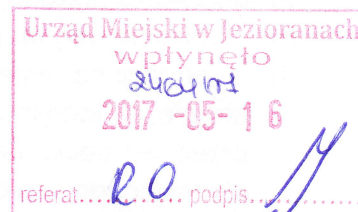 Urząd Miejski w Jezioranach
wpłynęło
2017 -05- 1 6
referat..... RO ..... podpis.....